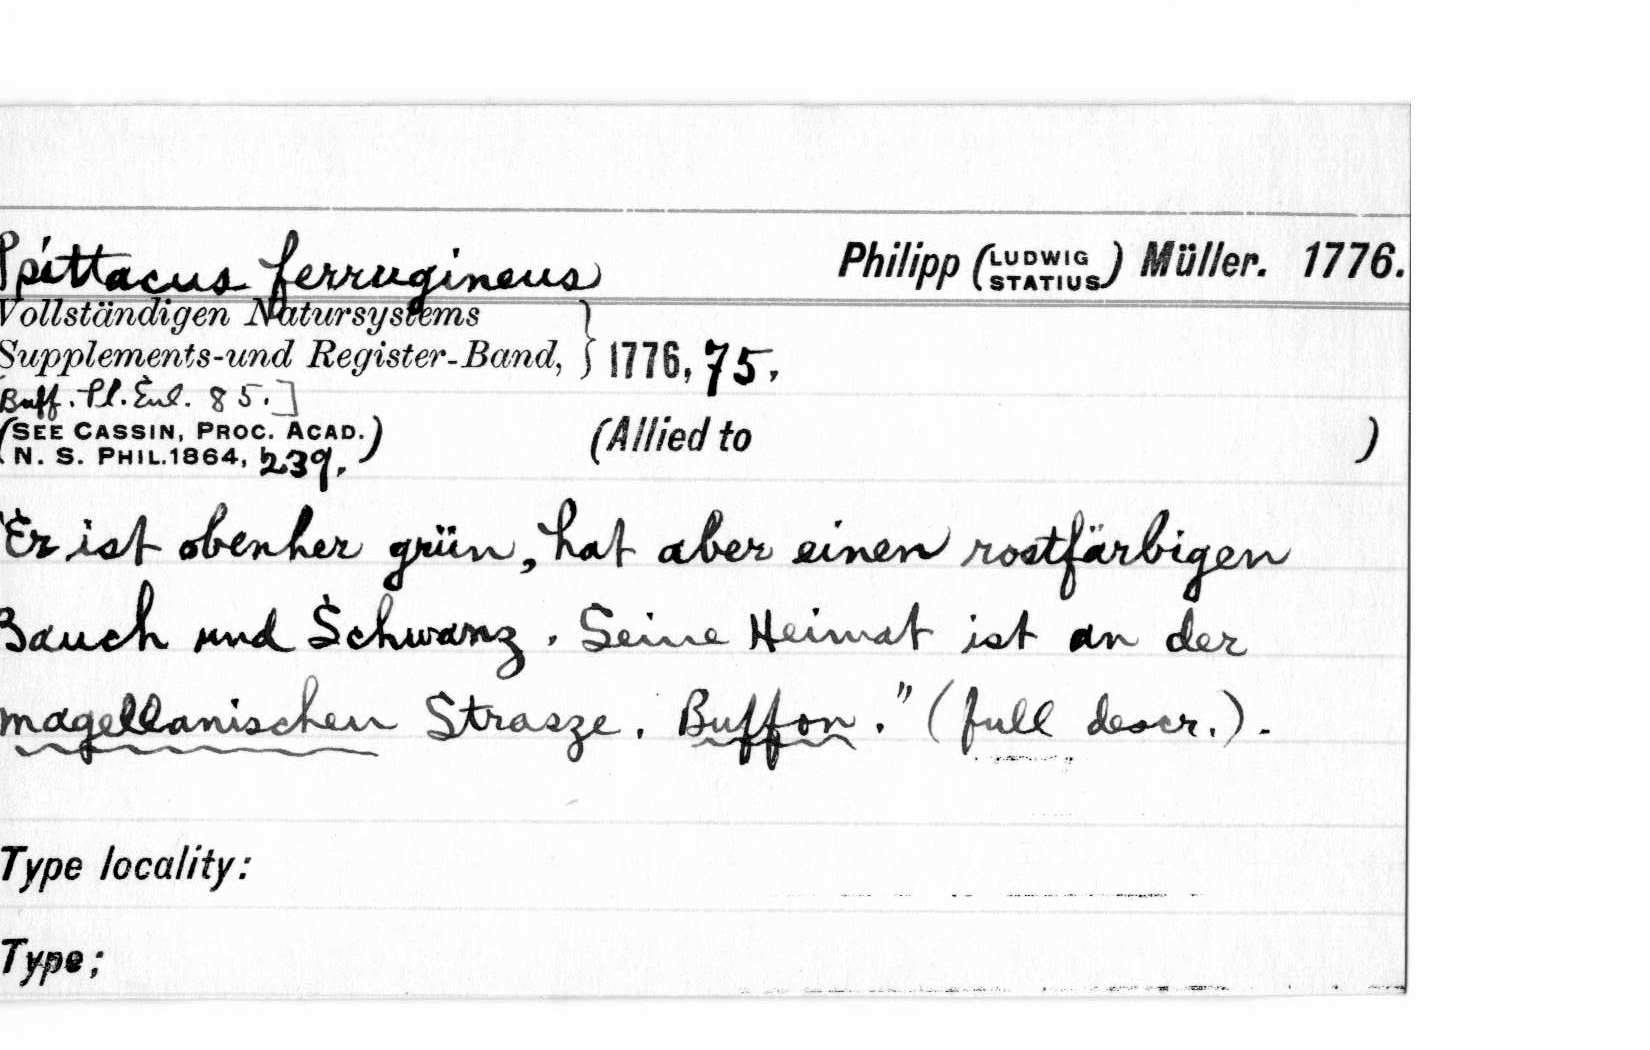 Psittacus ferrugineus Philipp (LUDWIG STATIUS) Müller. 1776.
Vollständigen Natursystems
Supplements-und Register-Band, } 1776, 75.
Buff. Pl. Enl. 85.]
(SEE CASSIN, PROC. ACAD. N. S. PHIL. 1864, 239.) (Allied to )
"Er ist obenher grün, hat aber einen rostfärbigen
Bauch und Schwanz. Seine Heimat ist an der
magellanischen Strasze. Buffon." (full descr.).
Type locality:
Type;